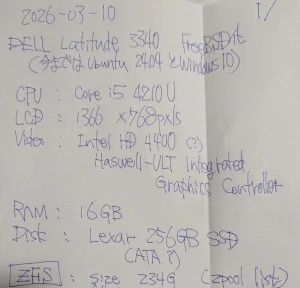 2026-03-10
1/
DELL Latitude 3340 FreeBSD化
(今までは Ubuntu 2404 と Windows 10)
CPU : Core i5 4210U
LCD : 1366 x 768 pxls
Video : Intel HD 4400 (?)
Haswell-ULT Integrated
Graphics Controller
RAM : 16GB
Disk : Lexar 256GB SSD
(ATA ?)
ZFS : size 234G (zpool list)